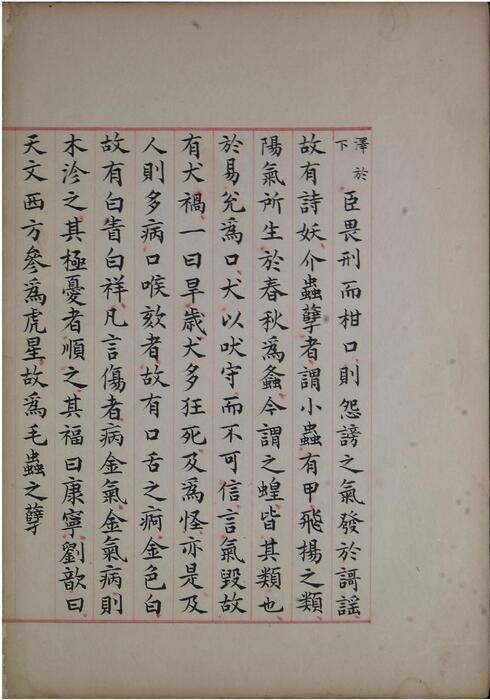 澤於下臣畏刑而柑口則怨謗之氣發於謌謡
故有詩妖介蟲孽者謂小蟲有甲飛揚之類
陽氣所生於春秋為螽今謂之蝗皆其類也
於易兊為口犬以吠守而不可信言氣毀故
有犬禍一曰旱歲犬多狂死及為怪亦是及
人則多病口喉欬者故有口舌之痾金色白
故有白眚白祥凡言傷者病金氣金氣病則
木沴之其極憂者順之其福曰康寧劉歆曰
天文西方參為虎星故為毛蟲之孽